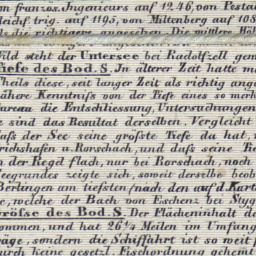 m französ. Ingenieurs auf 1246, von Pestal
leichf. trig. auf 1195, von Miltenberg auf 108
Feld steht der Untersee bei Radolfzell gem
Tiefe des Bod. S. In älterer Zeit hatte m
theils diese, seit langer Zeit als richtig ang
nähere Kenntniſs von der Tiefe eines so merk
Bureau die Entschliessung, Untersuchungen
e sind das Resultat derselben. Vergleicht
daſs der See seine gröſste Tiefe da hat, w
richshafen u. Rorschach, und daſs seine Tie
n der Regel flach, nur bei Rorschach, noch
Seegrundes zeigte sich, soweit derselbe beob
Berlingen am tiefsten (nach den auf d. Kart
e, welche der Bach von Eschenz bei Styg
Gröſse des Bod. S. Der Flächeninhalt de
ommen, und hat 26¼ Meilen im Umfang
räge, sondern die Schiffahrt ist so weit f
urch keine gesetzl. Fischordnung gehemt